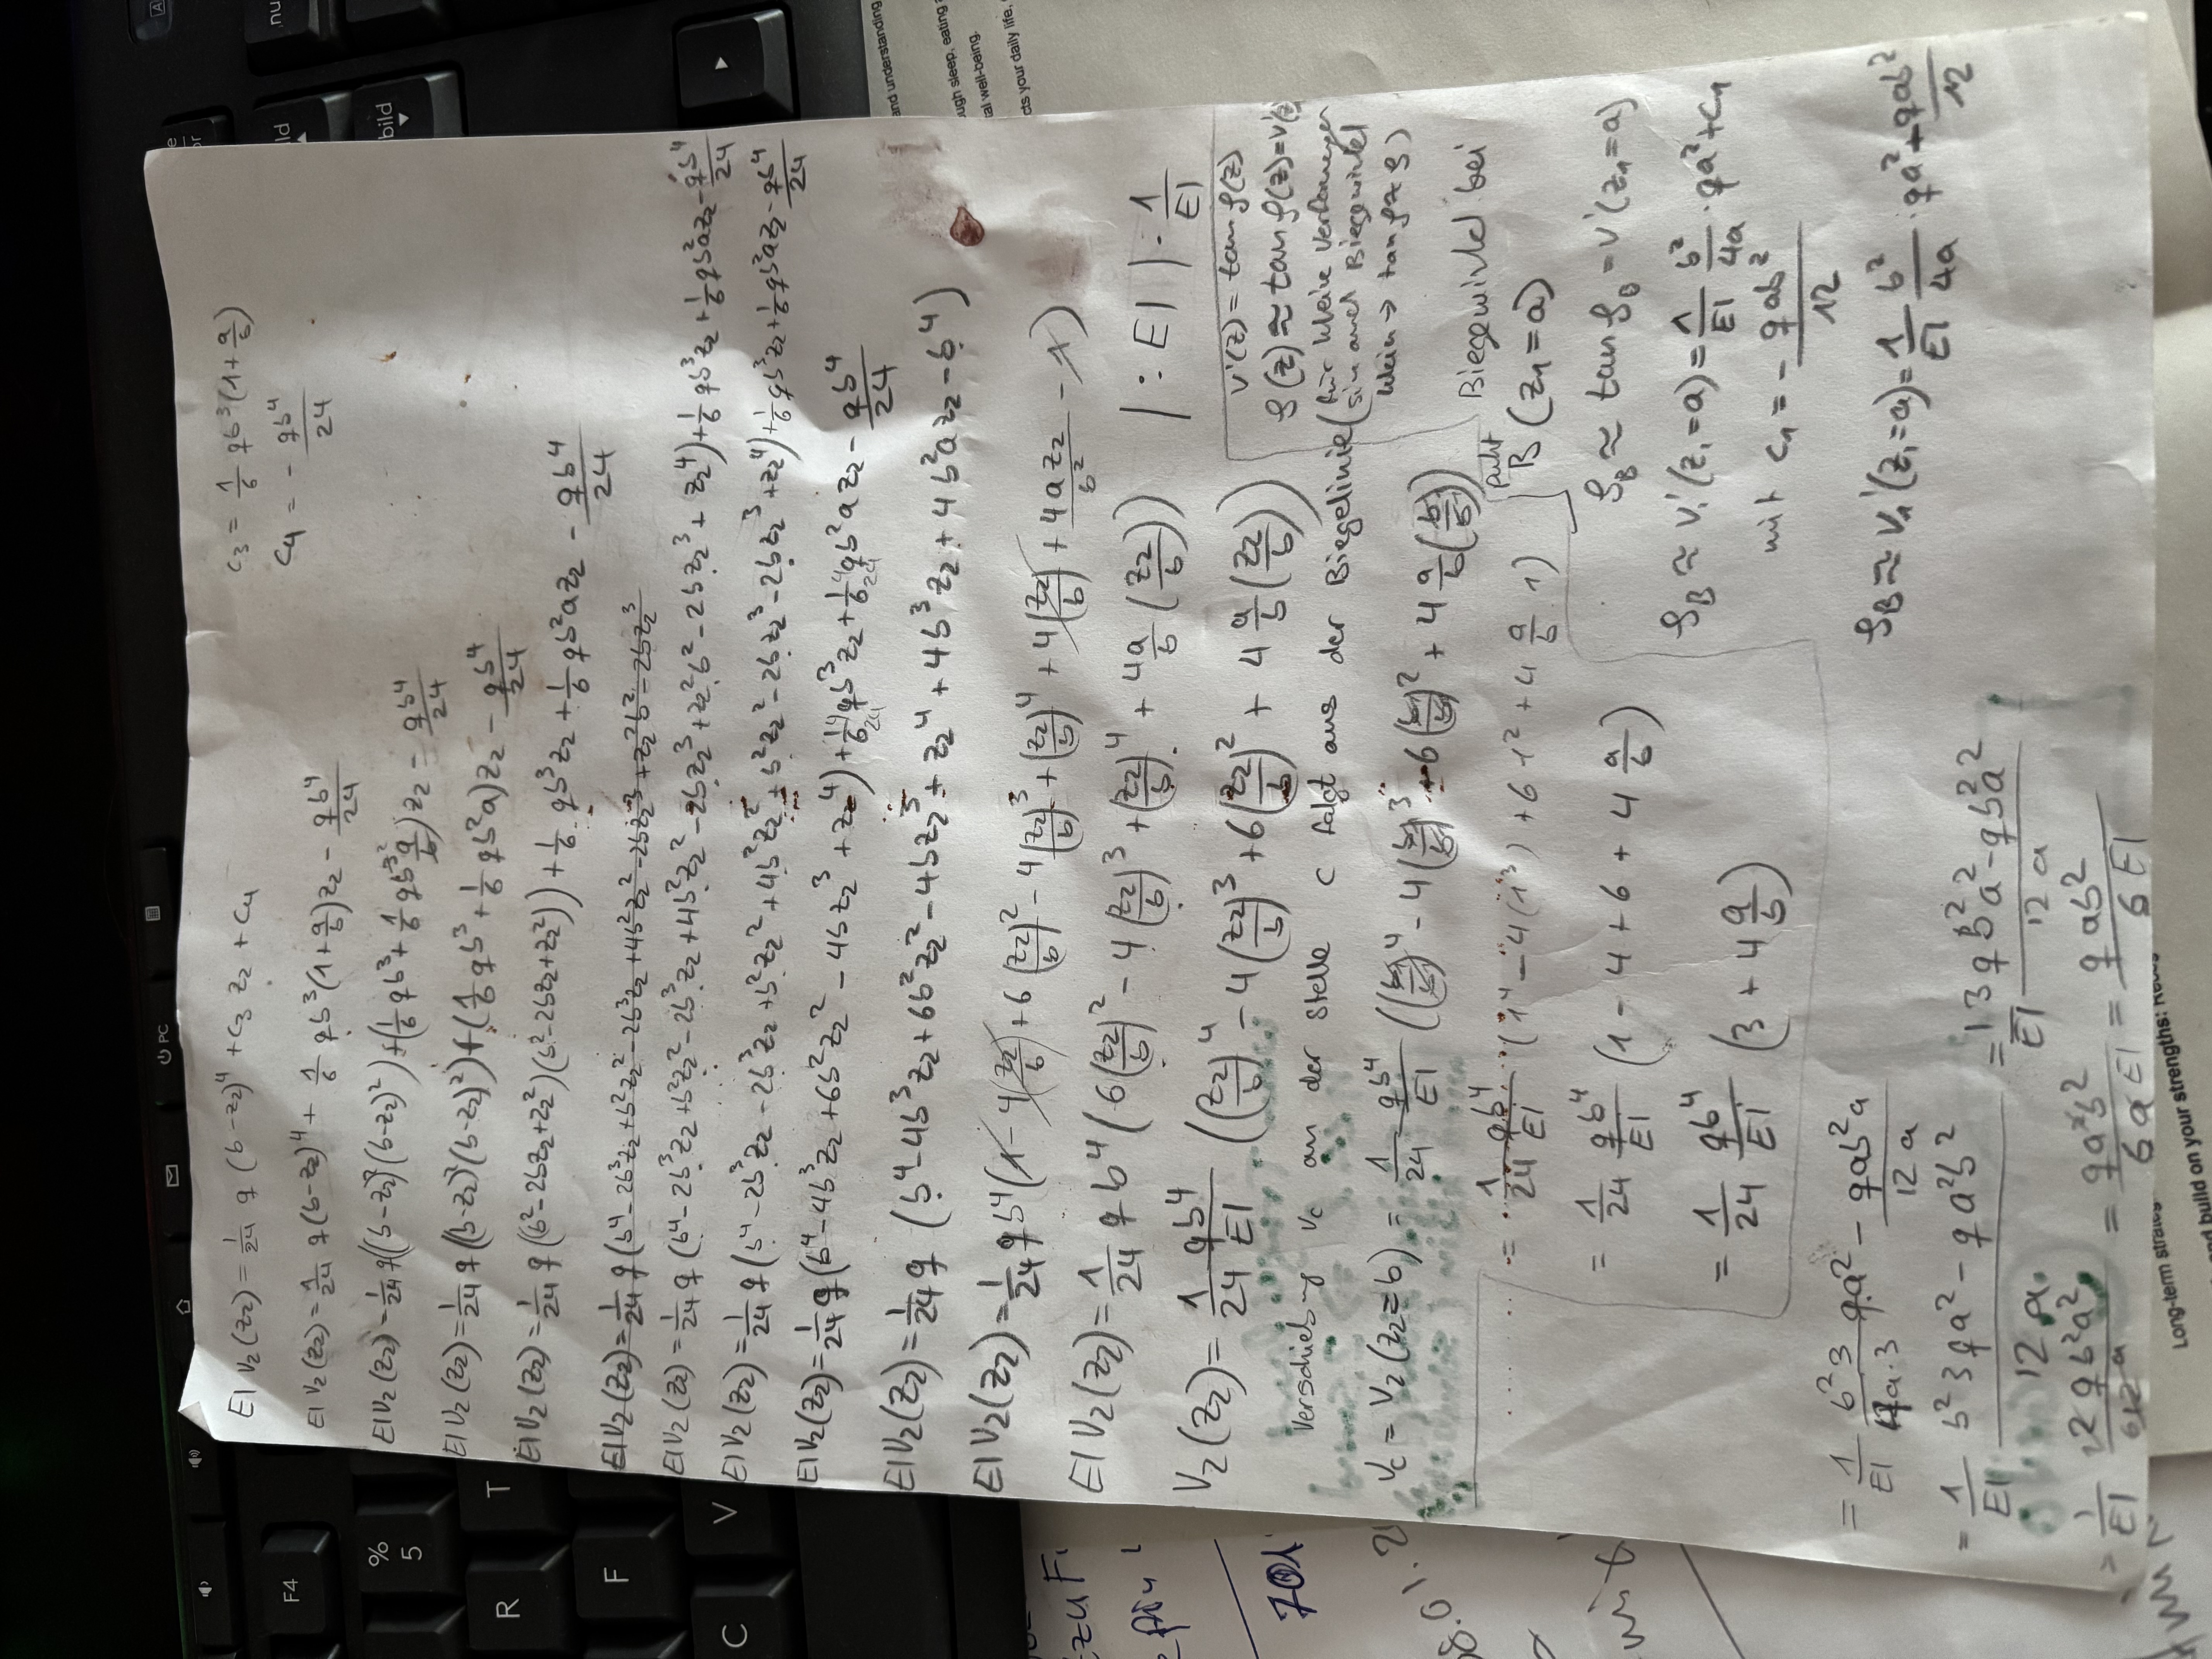 c₃ = 1/6 qb³(1+a/b)
c₄ = - qb⁴/24
EI v₂(z₂) = 1/24 q (b-z₂)⁴ + c₃ z₂ + c₄
EI v₂(z₂) = 1/24 q(b-z₂)⁴ + 1/6 qb³(1+a/b)z₂ - qb⁴/24
EI v₂(z₂) = 1/24 q((b-z₂)²(b-z₂)²)+(1/6 qb³+1/6 qb³ a/b)z₂ - qb⁴/24
EI v₂(z₂) = 1/24 q((b-z₂)²(b-z₂)²)+(1/6 qb³+1/6 qb²a)z₂ - qb⁴/24
EI v₂(z₂) = 1/24 q((b²-2bz₂+z₂²)(b²-2bz₂+z₂²))+1/6 qb³z₂+1/6 qb²az₂ - qb⁴/24
EI v₂(z₂) = 1/24 q(b⁴-2b³z₂+b²z₂²-2b³z₂+4b²z₂²-2bz₂³+z₂²b²-2bz₂³
EI v₂(z₂) = 1/24 q(b⁴-2b³z₂+b²z₂²-2b³z₂+4b²z₂²-2bz₂³+z₂²b²-2bz₂³+z₂⁴)+1/6 qb³z₂+1/6 qb²az₂-qb⁴/24
EI v₂(z₂) = 1/24 q(b⁴-2b³z₂-2b³z₂+b²z₂²+4b²z₂²+b²z₂²-2bz₂³-2bz₂³+z₂⁴)+1/6 qb³z₂+1/6 qb²az₂-qb⁴/24
EI v₂(z₂) = 1/24 q(b⁴-4b³z₂+6b²z₂²-4bz₂³+z₂⁴)+4/24 qb³z₂+4/24 qb²az₂-qb⁴/24
EI v₂(z₂) = 1/24 q (b⁴-4b³z₂+6b²z₂²-4bz₂³+z₂⁴+4b³z₂+4b²az₂-b⁴)
EI v₂(z₂) = 1/24 qb⁴(1-4(z₂/b)+6(z₂/b)²-4(z₂/b)³+(z₂/b)⁴+4(z₂/b)+4az₂/b²-1)
EI v₂(z₂) = 1/24 qb⁴(6(z₂/b)²-4(z₂/b)³+(z₂/b)⁴+4a/b(z₂/b)) | : EI | · 1/EI
v₂(z₂) = 1/24 qb⁴/EI ((z₂/b)⁴-4(z₂/b)³+6(z₂/b)²+4 a/b (z₂/b))
v'(z) = tan φ(z)
φ(z) ≈ tan φ(z) = v'(z)
(für kleine Verformungen
sin auch Biegewinkel
klein → tan φ ≈ φ)
Verschiebung v_c an der Stelle C folgt aus der Biegelinie
v_c = v₂(z₂=b) = 1/24 qb⁴/EI ((b/b)⁴-4(b/b)³+6(b/b)²+4 a/b(b/b))
= 1/24 qb⁴/EI (1⁴-4(1³)+6·1²+4 a/b·1)
= 1/24 qb⁴/EI (1-4+6+4 a/b)
= 1/24 qb⁴/EI (3+4 a/b)
Biegewinkel bei
Punkt B (z₁=a)
φ_B ≈ tan φ_B = v'(z₁=a)
φ_B ≈ v₁'(z₁=a) = 1/EI b²/4a · qa² + c₁
mit c₁ = - qab²/12
φ_B ≈ v₁'(z₁=a) = 1/EI b²/4a · qa² + qab²/12
= 1/EI b²3/4a·3 qa² - qab²a/12a
= 1/EI b²3qa²-qa²b²/12a = 1/EI 3qb²a²-qb²a²/12a
= 1/EI 2qb²a²/12a = qa²b²/6aEI = qab²/6EI
and understanding
ugh sleep, eating
al well-being.
cts your daily life.
Long-term
and build on your strengths:
PC
bild
F4
%
5
R
T
F
C
V